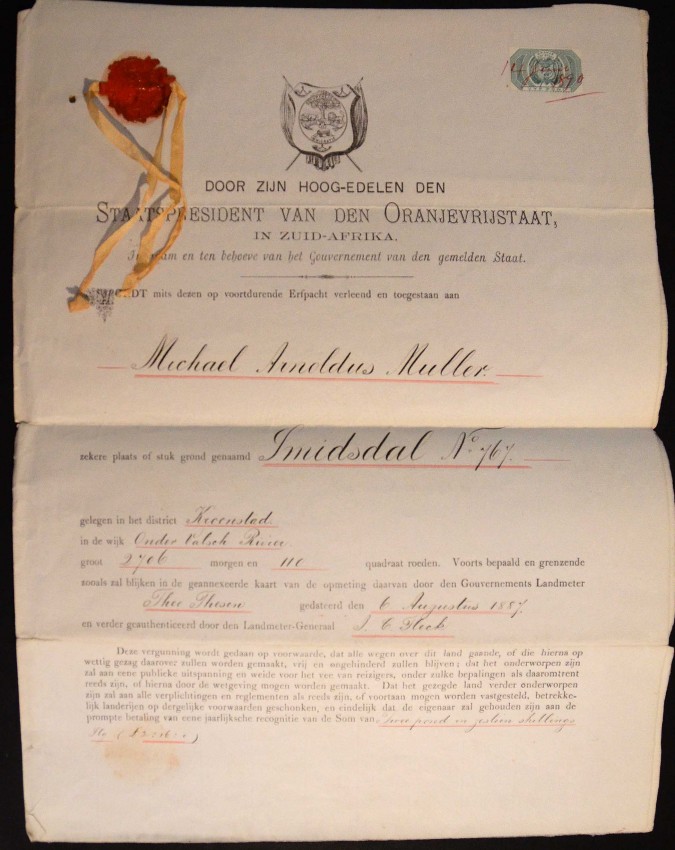 DOOR ZIJN HOOG-EDELEN DEN
STAATSPRESIDENT VAN DEN ORANJEVRIJSTAAT,
IN ZUID-AFRIKA,
In naam en ten behoeve van het Gouvernement van den gemelden Staat.
WORDT mits dezen op voortdurende Erfpacht verleend en toegestaan aan
Michael Arnoldus Muller
zekere plaats of stuk grond genaamd Smidsdal No. 767.
gelegen in het district Kroonstad
in de wijk Onder Valsch Rivier
groot 2706 morgen en 110 quadraat roeden. Voorts bepaald en grenzende
zooals zal blijken in de geannexeerde kaart van de opmeting daarvan door den Gouvernements Landmeter
Theo Thesen gedateerd den 6 Augustus 1887.
en verder geauthenticeerd door den Landmeter-Generaal J. C. Fleck
Deze vergunning wordt gedaan op voorwaarde, dat alle wegen over dit land gaande, of die hierna op
wettig gezag daarover zullen worden gemaakt, vrij en ongehinderd zullen blijven; dat het onderworpen zijn
zal aan eene publieke uitspanning en weide voor het vee van reizigers, onder zulke bepalingen als daaromtrent
reeds zijn, of hierna door de wetgeving mogen worden gemaakt. Dat het gezegde land verder onderworpen
zijn zal aan alle verplichtingen en reglementen als reeds zijn, of voortaan mogen worden vastgesteld, betrekke-
lijk landerijen op dergelijke voorwaarden geschonken, en eindelijk dat de eigenaar zal gehouden zijn aan de
prompte betaling van eene jaarlijksche recognitie van de Som van Twee pond en zestien shillings
Stg